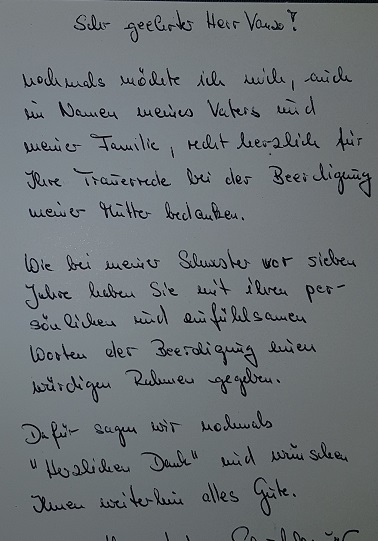 Sehr geehrter Herr
nochmals möchte ich mich, auch
im Namen meines Vaters und
meiner Familie, recht herzlich für
Ihre Trauerrede bei der Beerdigung
meiner Mutter bedanken.
Wie bei meiner Schwester vor sieben
Jahre haben Sie mit ihren per-
sönlichen und einfühlsamen
Worten der Beerdigung einen
würdigen Rahmen gegeben.
Dafür sagen wir nochmals
"Herzlichen Dank" und wünschen
Ihnen weiterhin alles Gute.